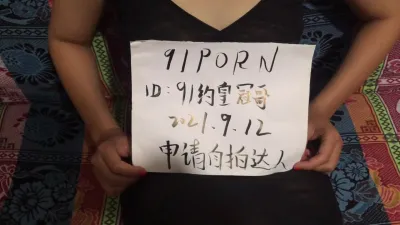 91PORN
ID:91约皇冠哥
2021.9.12
申请自拍达人